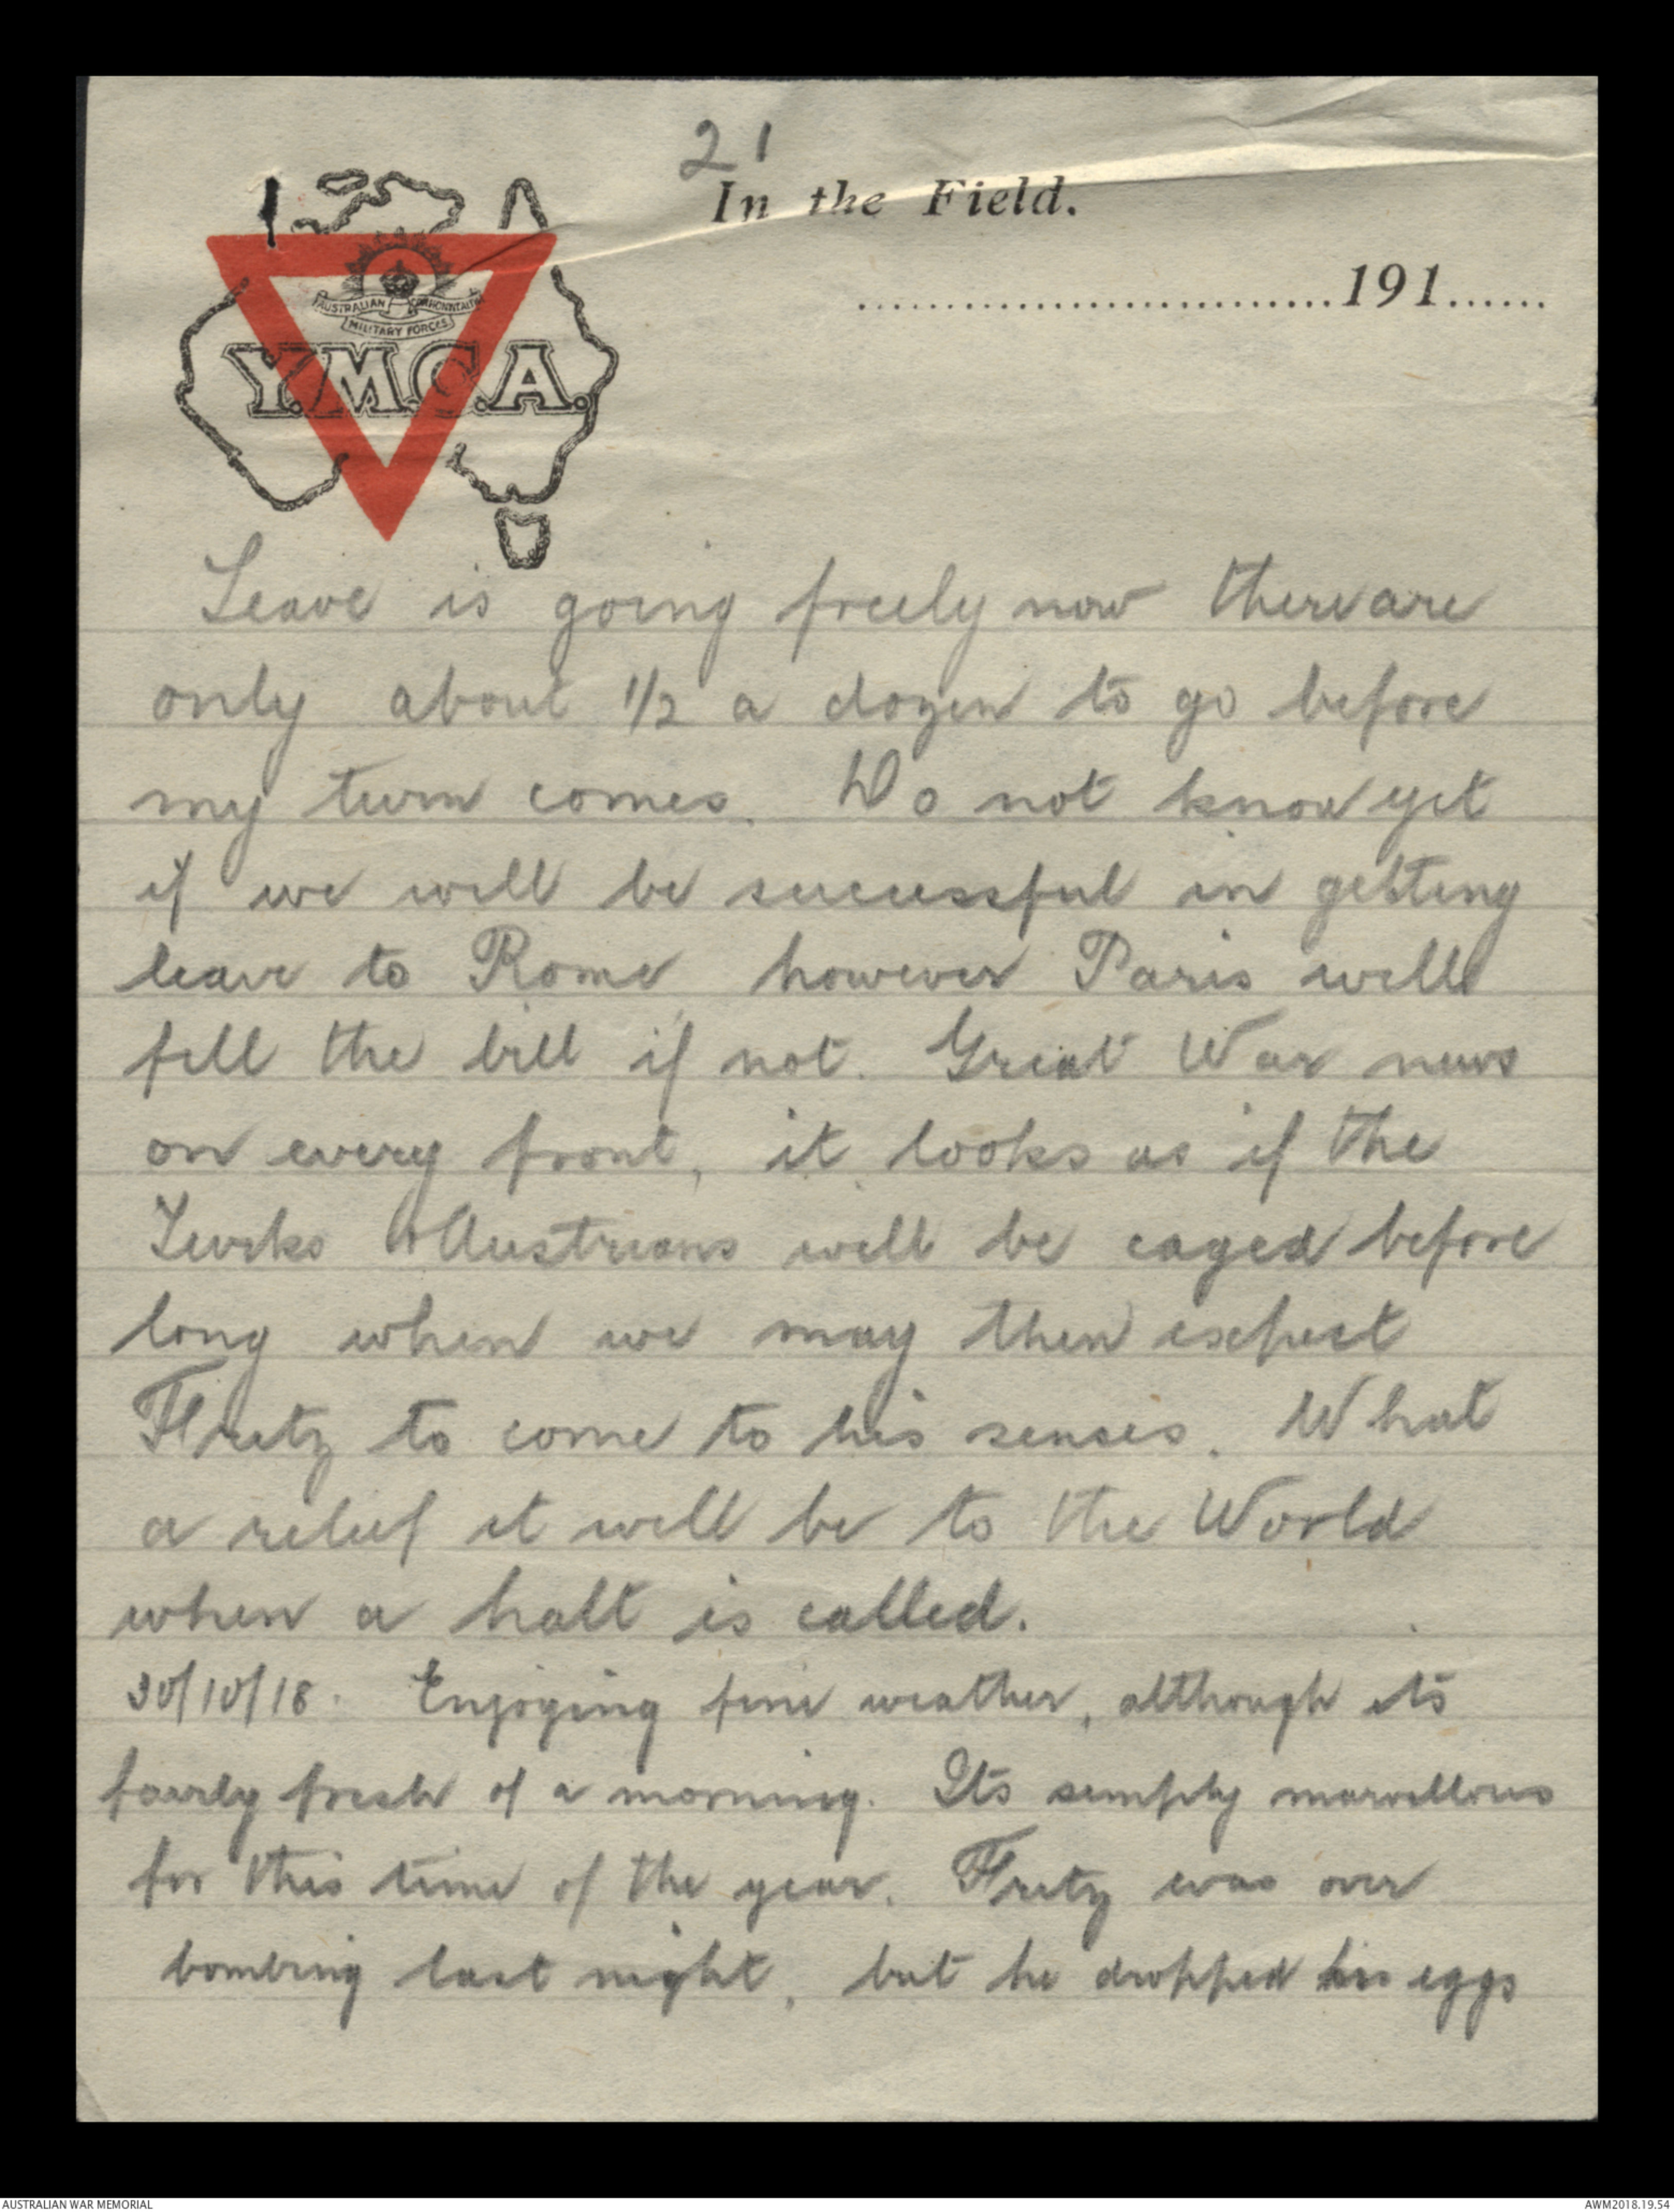 21
In the Field.
............................191......
AUSTRALIAN COMMONWEALTH
MILITARY FORCES
Y.M.C.A.
Leave is going freely now there are
only about 1/2 a dozen to go before
my turn comes. Do not know yet
if we will be successful in getting
leave to Rome however Paris will
fill the bill if not. Great War news
on every front, it looks as if the
Turks & Austrians will be caged before
long when we may then expect
Fritz to come to his senses. What
a relief it will be to the World
when a halt is called.
30/10/18. Enjoying fine weather, although its
fairly fresh of a morning. Its simply marvellous
for this time of the year. Fritz was over
bombing last night, but he dropped his eggs
AUSTRALIAN WAR MEMORIAL
AWM2018.19.54